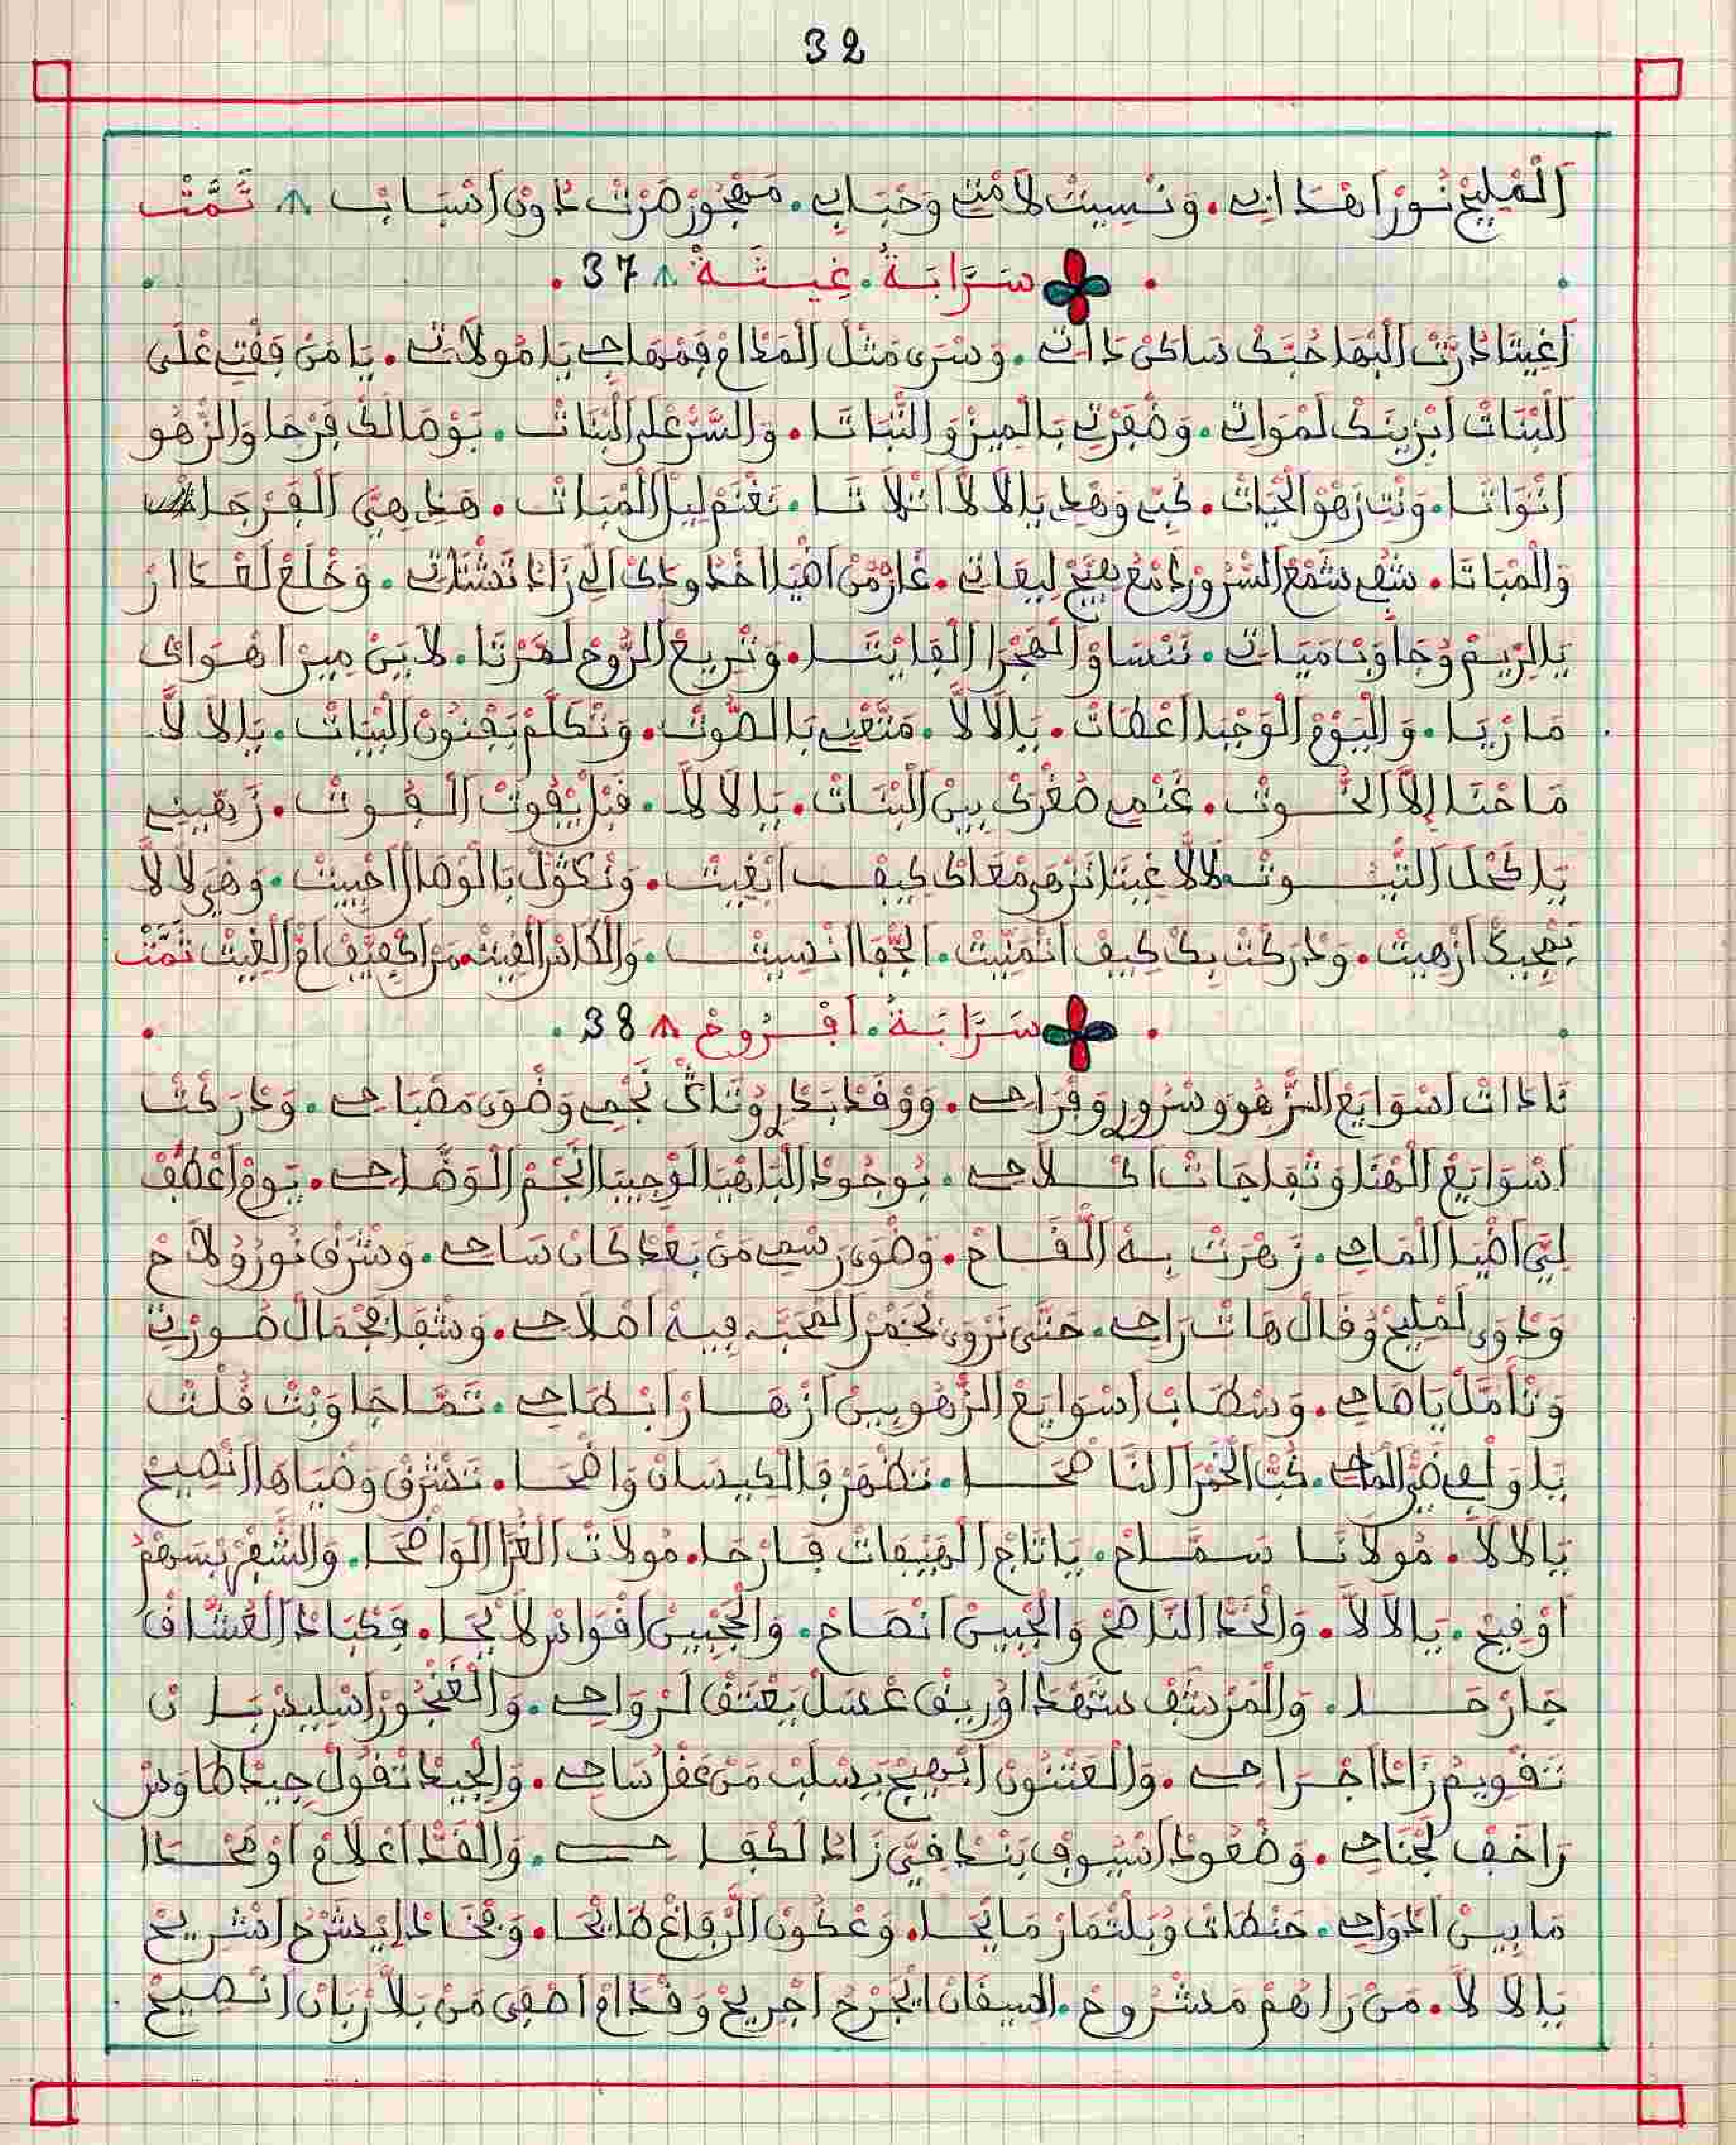 32
اَلْمْلِيحْ نُورْ اهْدَابِي. وَنْسِيتْ لاَمْتِي وَحْبَابِي. مَهْجُورْ صَرْتْ دُونْ اَسْبَابْ ۸ تَمَّتْ
سَرَّابَةُ. غِيثَةْ ۸ 37.
اَغِيثَا دُرَّتْ اَلْبْهَا حُبَّكْ سَاكَنْ دَاتِي. وَسْرَى مَثْلْ اَلْمْدَامْ فِمْهَاجِي يَا مُولاَتِي. يَا مَنْ فِقْتِي عْلَى
اَلْبْنَاتْ اَبْزِينَكْ لَمْوَاتِي. وَضْفَرْتِي بَالْمِيزْ وَ التّْبَاتَا. وَالسَّرّْ عْلَى اَلْبْنَاتْ. يَوْمَا لَكْ فَرْحَا وَالزّْهُو
اَنْوَاتَا. وَنْتِ زَهْوْ الْحْيَاتْ. كُبِّي وَهْدِي يَالاَلاَّ اَنْلاَتَا. نَغْنَمْ لِيلْ اَلْمْبَاتْ. هَذِي هِيَّ اَلْفَرْجَا
وَالْمْبَاتَا. شُفِي شْمَعْ اَلسّْرُورْ دَمْعُ يهَيَّجْ لِيعَاتِي. غَارْ مْنْ اَضْيَا اَخْدُودَكْ اَلِّي زَادْ تَشْتَاتِي. وَخْلَعْ لَعْدَارْ
يَا الرِّيمْ وُجَاوَبْ مَيَاتِي. نَنْسَاوْ اَلْهَجْرَا اَلْفَايْتَا. وَتْرِيعْ اَلرُّوحْ لَمَرْتَا. لاَيَنْ مِيزْ اَهْوَاكْ
مَا رْيَا. وَالْيَوْمْ اَلْوَجْبَا اَعْطَاتْ. يَالاَلاَّ. مَتّْعْنِي بَالصُّوتْ. وَنْكَلَّمْ بَفْنُونْ اَلْبْيَاتْ. يَالاَلاَّ.
مَا حْنَا اِلاَّ اَلْحُوتْ. غَنْمِي صُغْرَكْ بِينْ اَلْبْنَاتْ. يَالاَلاَّ. قْبَلْ يْفُوتْ اَلْفُوتْ. زَهِّينِي
يَا كَحْلْ اَلتِّيتُوتْ لاَلاَّ غِيثَا نَزْهَى مْعَاكْ كِيفْ اَبْغِيتْ. وَنْكُولْ بَالْوْصَالْ اَحْيِيتْ. وَهْيَ لاَلاَّ
بَهْجِبَكْ اَزْهِيتْ. وَدْرَكْتْ بِكْ كِيفْ اَتْمَنِّيتْ. اَلْجْفَا اَنْسِيتْ. وَالْكَاسْ اَلْفِيتْ. مَنْ اَكْفِيفْ اُمّْ اَلْغِيتْ تَمَّتْ
سَرَّابَةُ. اَفْرُوحْ ۸ 38.
تَادَاتْ اَسْوَايَعْ اَلزّْهُو وَسْرُورِ وَفْرَاحِي. وَوْفَدْ بَدْرِ وُتَاكْ نَجْمِي وَضْوَى مَصْبَاحِي. وَدْرَكْتْ
اَسْوَايَعْ اَلْهْنَا وَتْفَاجَاتْ اَكْلاَحِي. بُوجُودْ اَلْبَاهْيَا اَلْوْجِيبَا اَلنّْجَمْ اَلْوَضَّاحِي. يَوْمْ اَعْطَفْ
لِيَّ اَضْيَا اَلْمَاحِي. زَهْرَتْ بِهْ اَلْقَاحْ. وَضْوَى رَسْمِي مَنْ بَعْدْ كَانْ سَاحِي. وَشْرَقْ نُورُ وُلاَحْ
وَدْوَى لَمْلِيحْ وُقَالْ هَاتْ رَاحِي. حَتَّى نَرْوَى بْخَمْرْ اَلْمْحَبَّه فِيهْ اَصْلاَحِي. وَشْفَا بَجْمَالْ صُورْتِي
وَتَّامَلْ يَا صَاحِي. وَسْطَابْ اَسْوَايَعْ اَلزّْهُو بِينْ اَزْهَارْ اَبْطَاحِي. تَمَّا جَاوَبْتْ قُلْتْ
يَا وَلْفِي ضَيّْ اَلْمَاحِي. كُبّْ اَلْخَمْرَا اَلنَّاضْحَا. تَظْهَرْ فَالْكِيسَانْ وَاضْحَا. تَشْرَقْ وَضْيَاهَا اَنْصِيحْ
يَالاَلاَّ. مُولاَتَا سَمَّاحْ. يَا تَاجْ اَلْهَيْفَاتْ فَارْحَا. مُولاَتْ اَلْغُرَّا اَلْوَاضْحَا. وَالشّْفَرْ بْسَهْمُ
اَوْقِيحْ. يَالاَلاَّ. وَالْخَدّْ اَلنَّاضَحْ وَالْجْبِينْ اَنْصَاحْ. وَالْحْجْبِينْ اَقْوَاسْ لاَيْحَا. فَكْبَادْ اَلْعُشَّاقْ
جَارْحَا. وَالْمَرْشَفْ شَهْدْ اُورِيقْ عْسَلْ يَعْتَقْ لَرْوَاحِي. وَالْغَنْجُورْ اَسْلِيسْ بَانْ
تَقْوِيمُ زَادْ اَجْرَاحِي. وَالْعَتْنُونْ اَبْهِيجْ يَسْلَبْ مَنْ عَقْلُ سَاحِي. وَالْجِيدْ تْقُولْ جِيدْ طَاوَسْ
رَاخَفْ لَجْنَاحِي. وَضْعُودْ اَسْيُوفْ بَنْدْ فِيَّ زَادْ لَكْفَاحِي. وَالْقَدّْ اَعْلاَمْ اَوْ مَحْدَا
مَا بِينْ اَدْوَاحِي. حَنْطَاتْ وُبَلْتْمَارْ مَايْحَا. وَعْكُونْ اَلرّْفَاغْ طَايْحَا. وَفْخَادْ اِيشَرْحْ اَشْرِيحْ
يَالاَلاَّ. مَنْ رَاهُمْ مَشْرُوحْ. اَلسِّيقَانْ اَبْجَرْحْ اَجْرِيحْ وَقْدَامْ اَصْفَى مَنْ بَلاَّرْ بَانْ اَنْصِيحْ